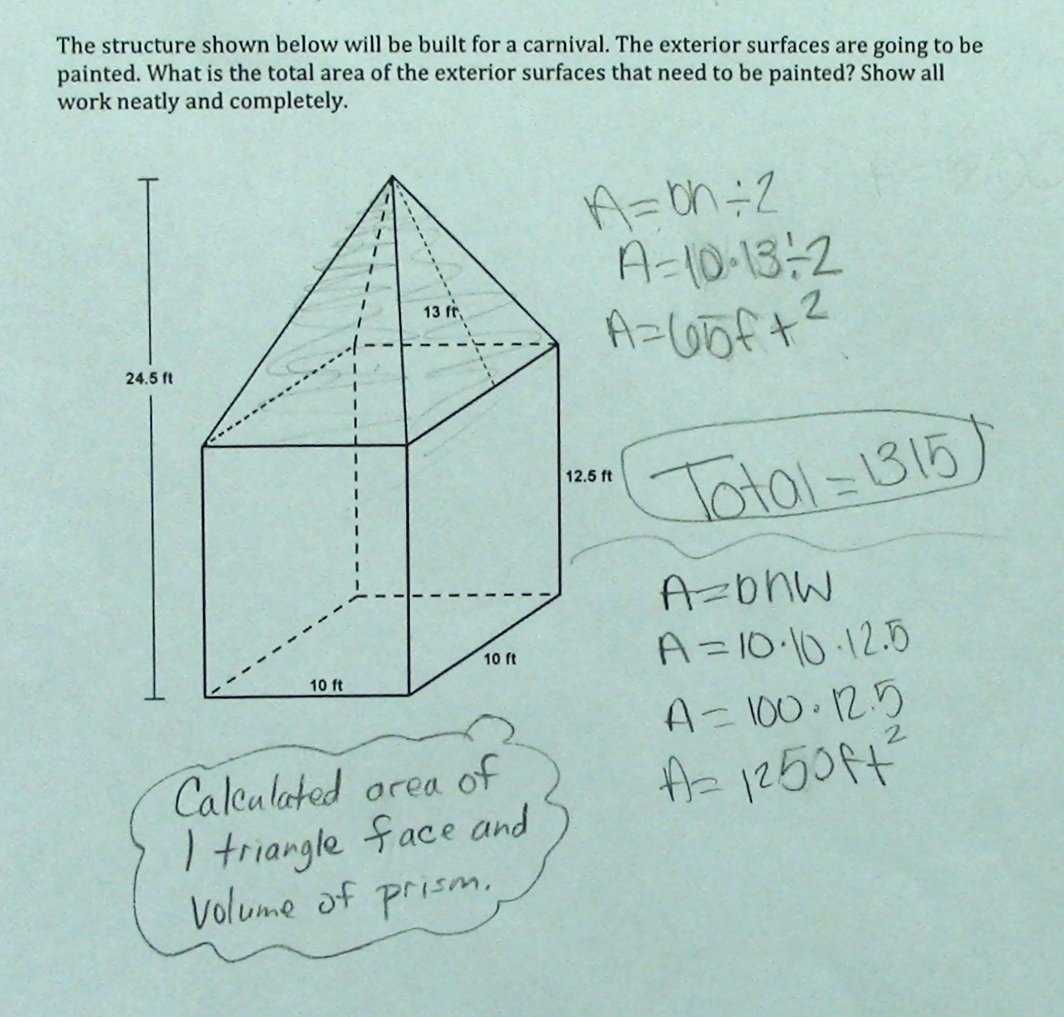 The structure shown below will be built for a carnival. The exterior surfaces are going to be
painted. What is the total area of the exterior surfaces that need to be painted? Show all
work neatly and completely.
A=bh÷2
A=10·13÷2
A=65ft²
13 ft
24.5 ft
12.5 ft
Total=1315
A=bhw
A=10·10·12.5
A=100·12.5
A=1250ft²
10 ft
10 ft
Calculated area of
1 triangle face and
volume of prism.